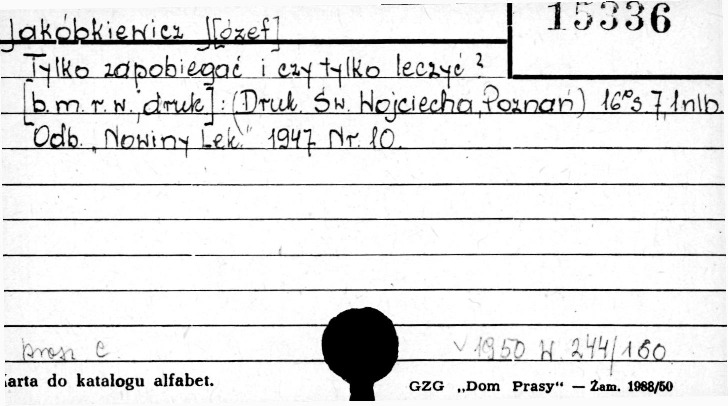 15336
Jakóbkiewicz J[ózef]
Tylko zapobiegać i czy tylko leczyć?
[b.m.r.w., druk]: (Druk. Św. Wojciecha, Poznań) 16° s. 7, 1 nlb.
Odb. „Nowiny Lek." 1947 Nr. 10.
brosz c
v 1950 W. 244/160
Karta do katalogu alfabet.
GZG „Dom Prasy“ — Zam. 1988/50